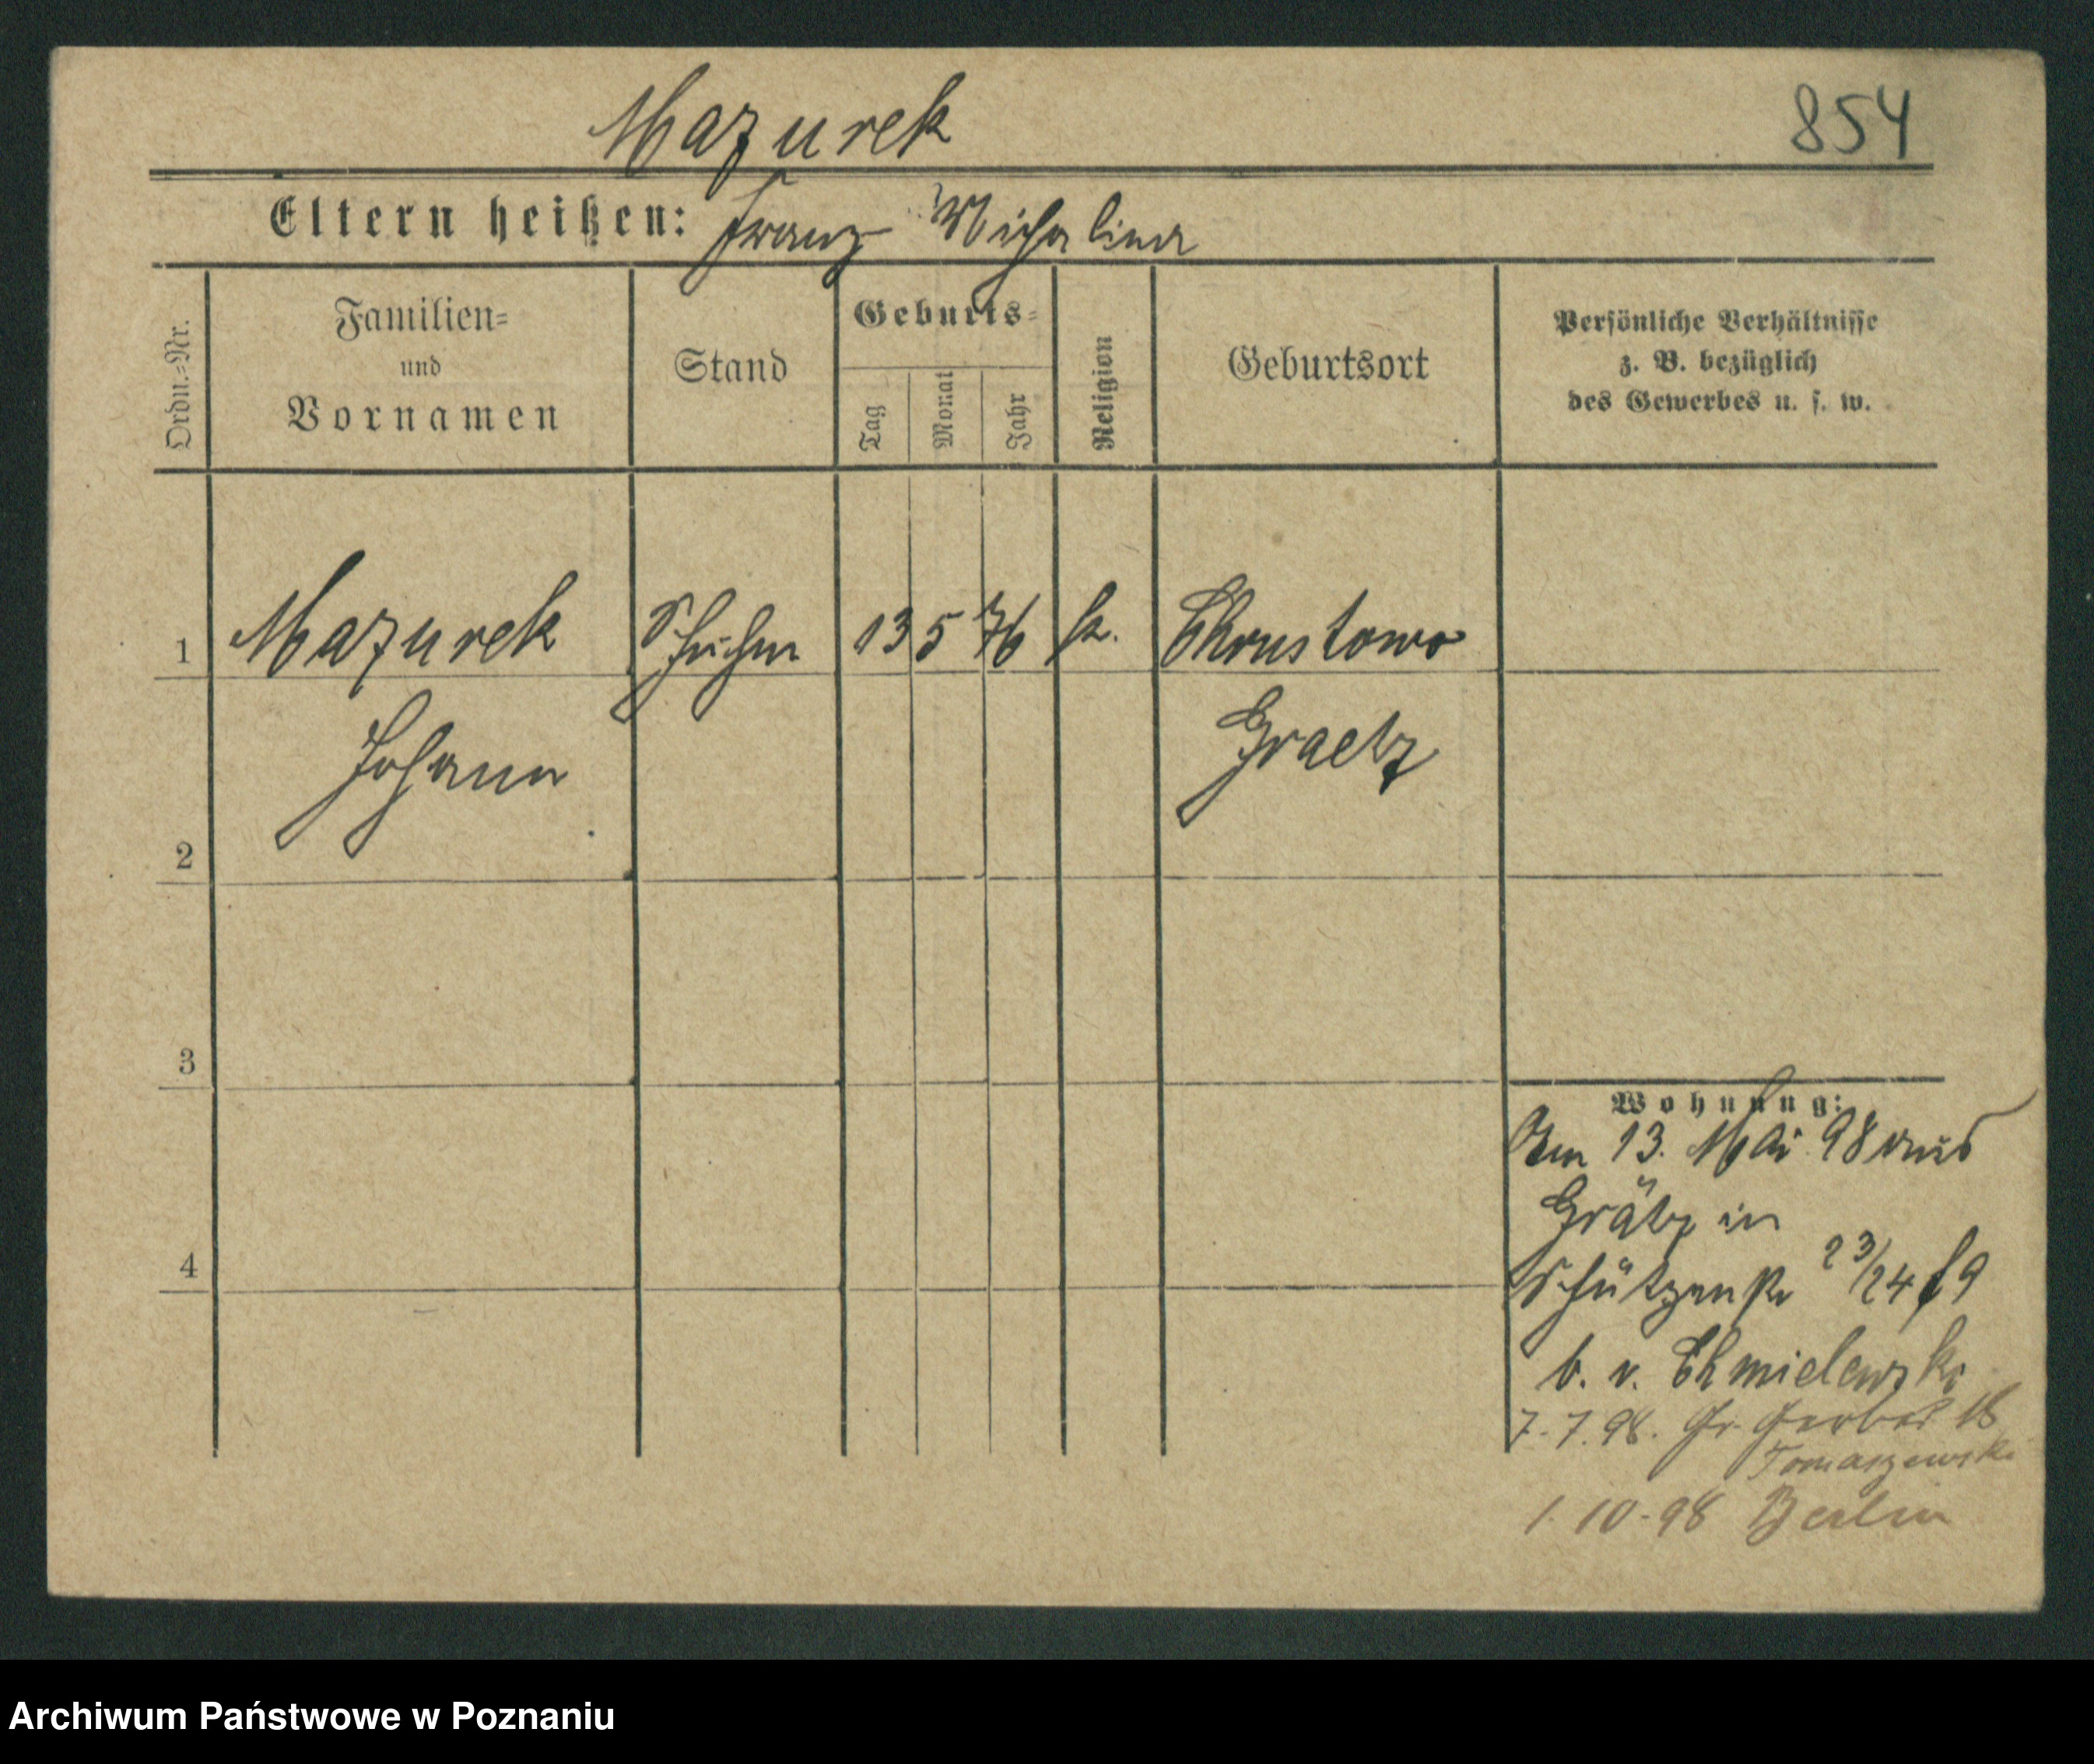 Mazurek
854
Eltern heißen: Franz Michalina
Ordn.-Nr.
Familien-
und
Vornamen
Stand
Geburts-
Tag
Monat
Jahr
Religion
Geburtsort
Persönliche Verhältnisse
z. B. bezüglich
des Gewerbes u. s. w.
1 Mazurek Schuhm 13 5 76 k. Chrustowo
Johann Graetz
2
3
4
Wohnung:
Am 13. Mai 98 aus
Grätz in
Schützenstr 23/24 
b. v. Chmielewski
7.7.98. Gr. Gerber 18
Tomaszewski
1.10.98 Berlin
Archiwum Państwowe w Poznaniu